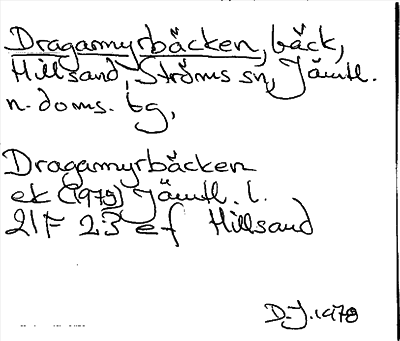 Dragarmyrbäcken, bäck,
Hillsand, Ströms sn, Jämtl.
n. doms. bg,
Dragarmyrbäcken
ek (1975) Jämtl. l.
21F 23 ef Hillsand
D.J. 1978